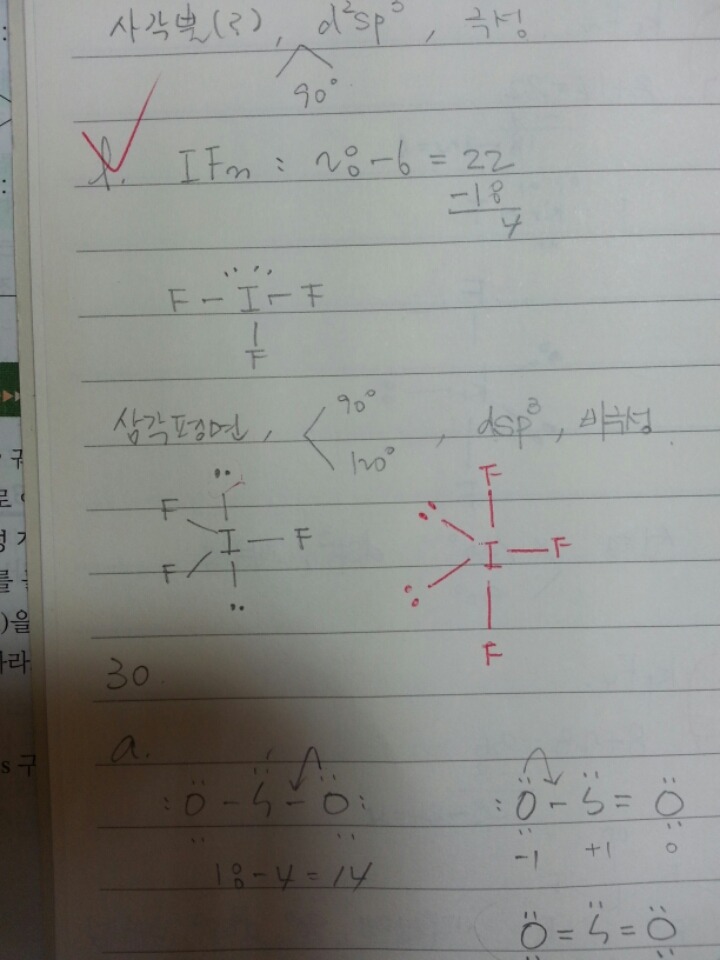 사각뿔(각), d²sp³, 극성
90°
f. IF₃ : 28-6 = 22
-18
4
F - I - F
F
삼각평면, 90° 120°, dsp³, 비극성
F
F I - F
I - F
F
F
30.
a.
:O - S - O: :O - S = O
18-4=14 -1 +1 0
O = S = O